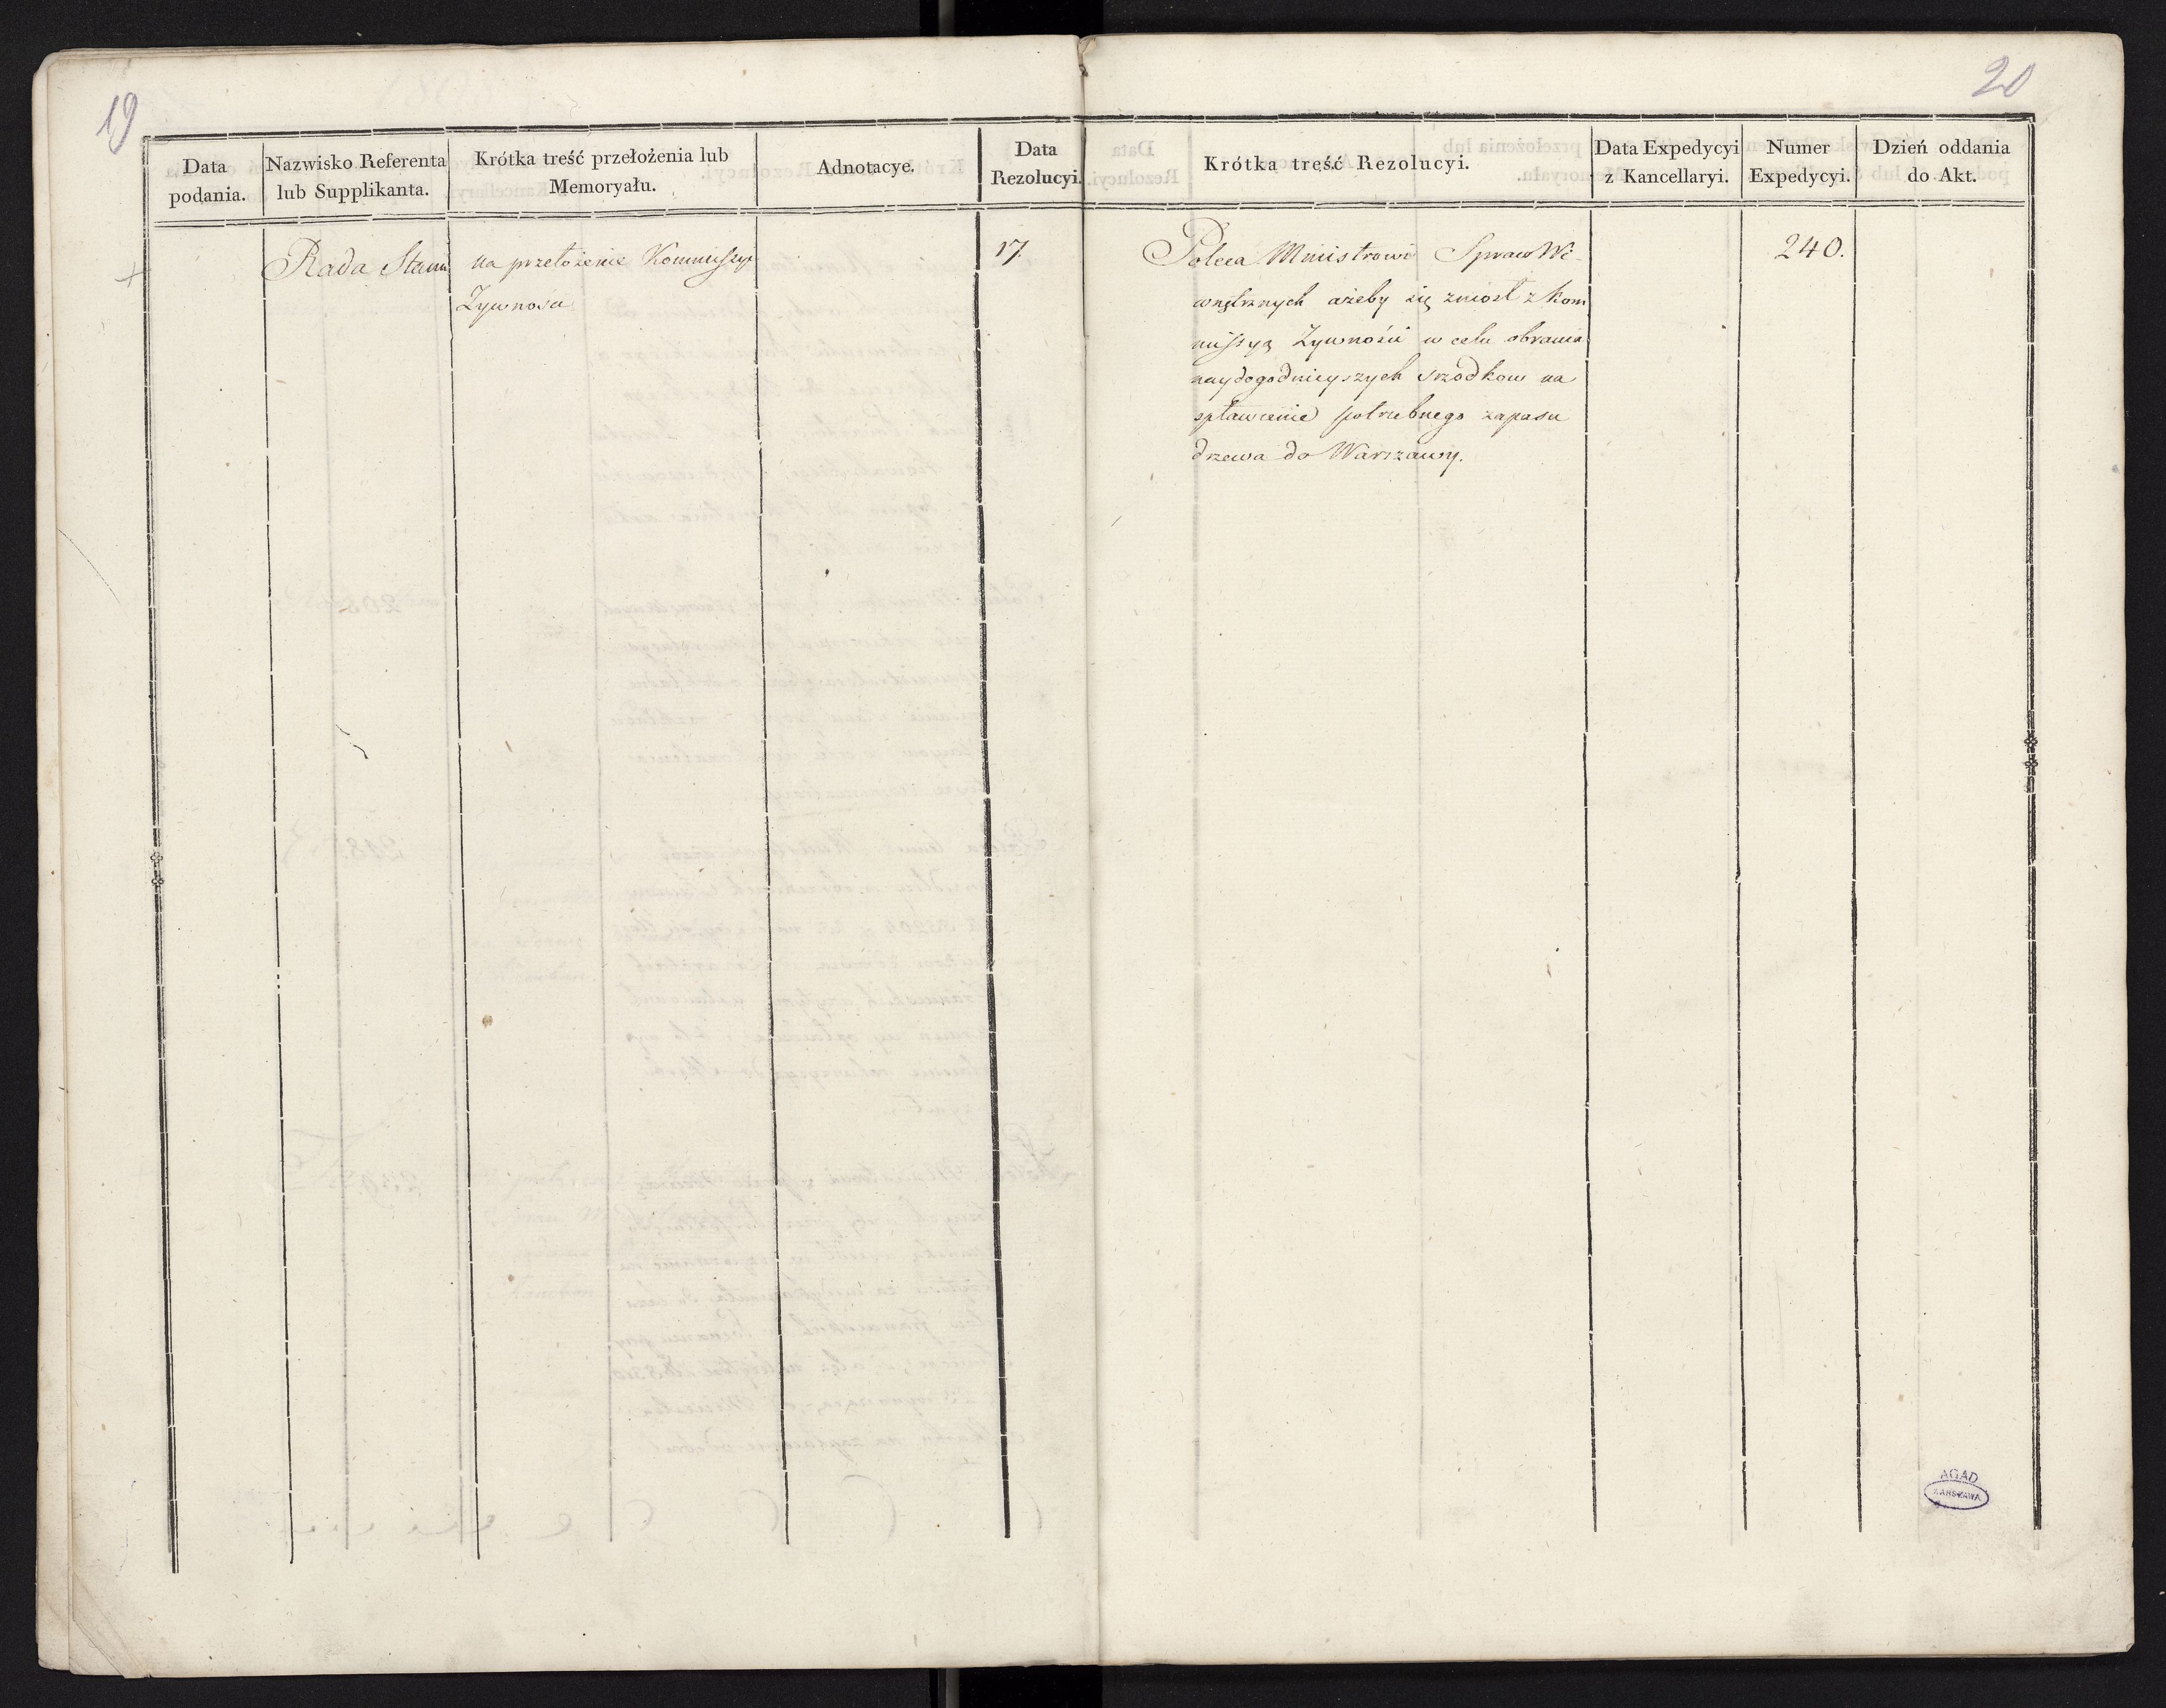 19
20
Data podania.
Nazwisko Referenta lub Supplikanta.
Krótka treść przełożenia lub Memoryału.
Adnotacye.
Data Rezolucyi.
Krótka treść Rezolucyi.
Data Expedycyi z Kancellaryi.
Numer Expedycyi.
Dzień oddania do Akt.
Rada Stanu
na przełożenie Kommissyi
Zywnosci
17.
Poleca Ministrowi Spraw We-
wnętrznych ażeby się zniosł z Kom
missyą Zywności w celu obrania
naydogodnieyszych srzodkow na
spławienie potrzebnego zapasu
drzewa do Warszawy.
240.
AGAD
WARSZAWA